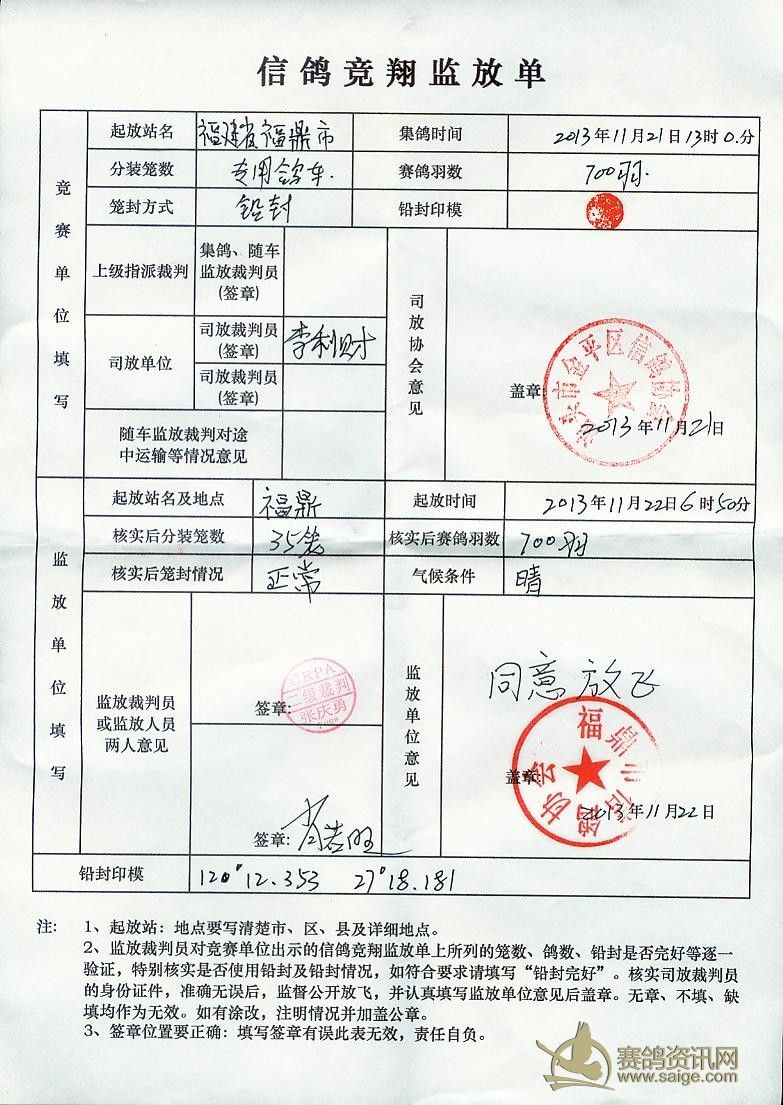 信鸽竞翔监放单
竞赛单位填写
起放站名 福建省福鼎市 集鸽时间 2013年11月21日13时0.分
分装笼数 专用鸽车. 赛鸽羽数 700羽.
笼封方式 铅封 铅封印模
上级指派裁判
集鸽、随车
监放裁判员
(签章)
司放单位
司放裁判员
(签章) 李利财
司放裁判员
(签章)
随车监放裁判对途
中运输等情况意见
司放协会意见
盖章:
市金平区信鸽协会
2013年11月21日
监放单位填写
起放站名及地点 福鼎 起放时间 2013年11月22日6时50分
核实后分装笼数 35笼 核实后赛鸽羽数 700羽
核实后笼封情况 正常 气候条件 晴
监放裁判员
或监放人员
两人意见
签章:
CRPA
二级裁判
张庆勇
签章:
监放单位意见
同意放飞
盖章:
福鼎市信鸽协会
2013年11月22日
铅封印模 120°12.353 27°18.181
注: 1、起放站: 地点要写清楚市、区、县及详细地点。
2、监放裁判员对竞赛单位出示的信鸽竞翔监放单上所列的笼数、鸽数、铅封是否完好等逐一
验证，特别核实是否使用铅封及铅封情况，如符合要求请填写“铅封完好”。核实司放裁判员
的身份证件，准确无误后，监督公开放飞，并认真填写监放单位意见后盖章。无章、不填、缺
填均作为无效。如有涂改，注明情况并加盖公章。
3、签章位置要正确: 填写签章有误此表无效，责任自负。
赛鸽资讯网
www.saige.com